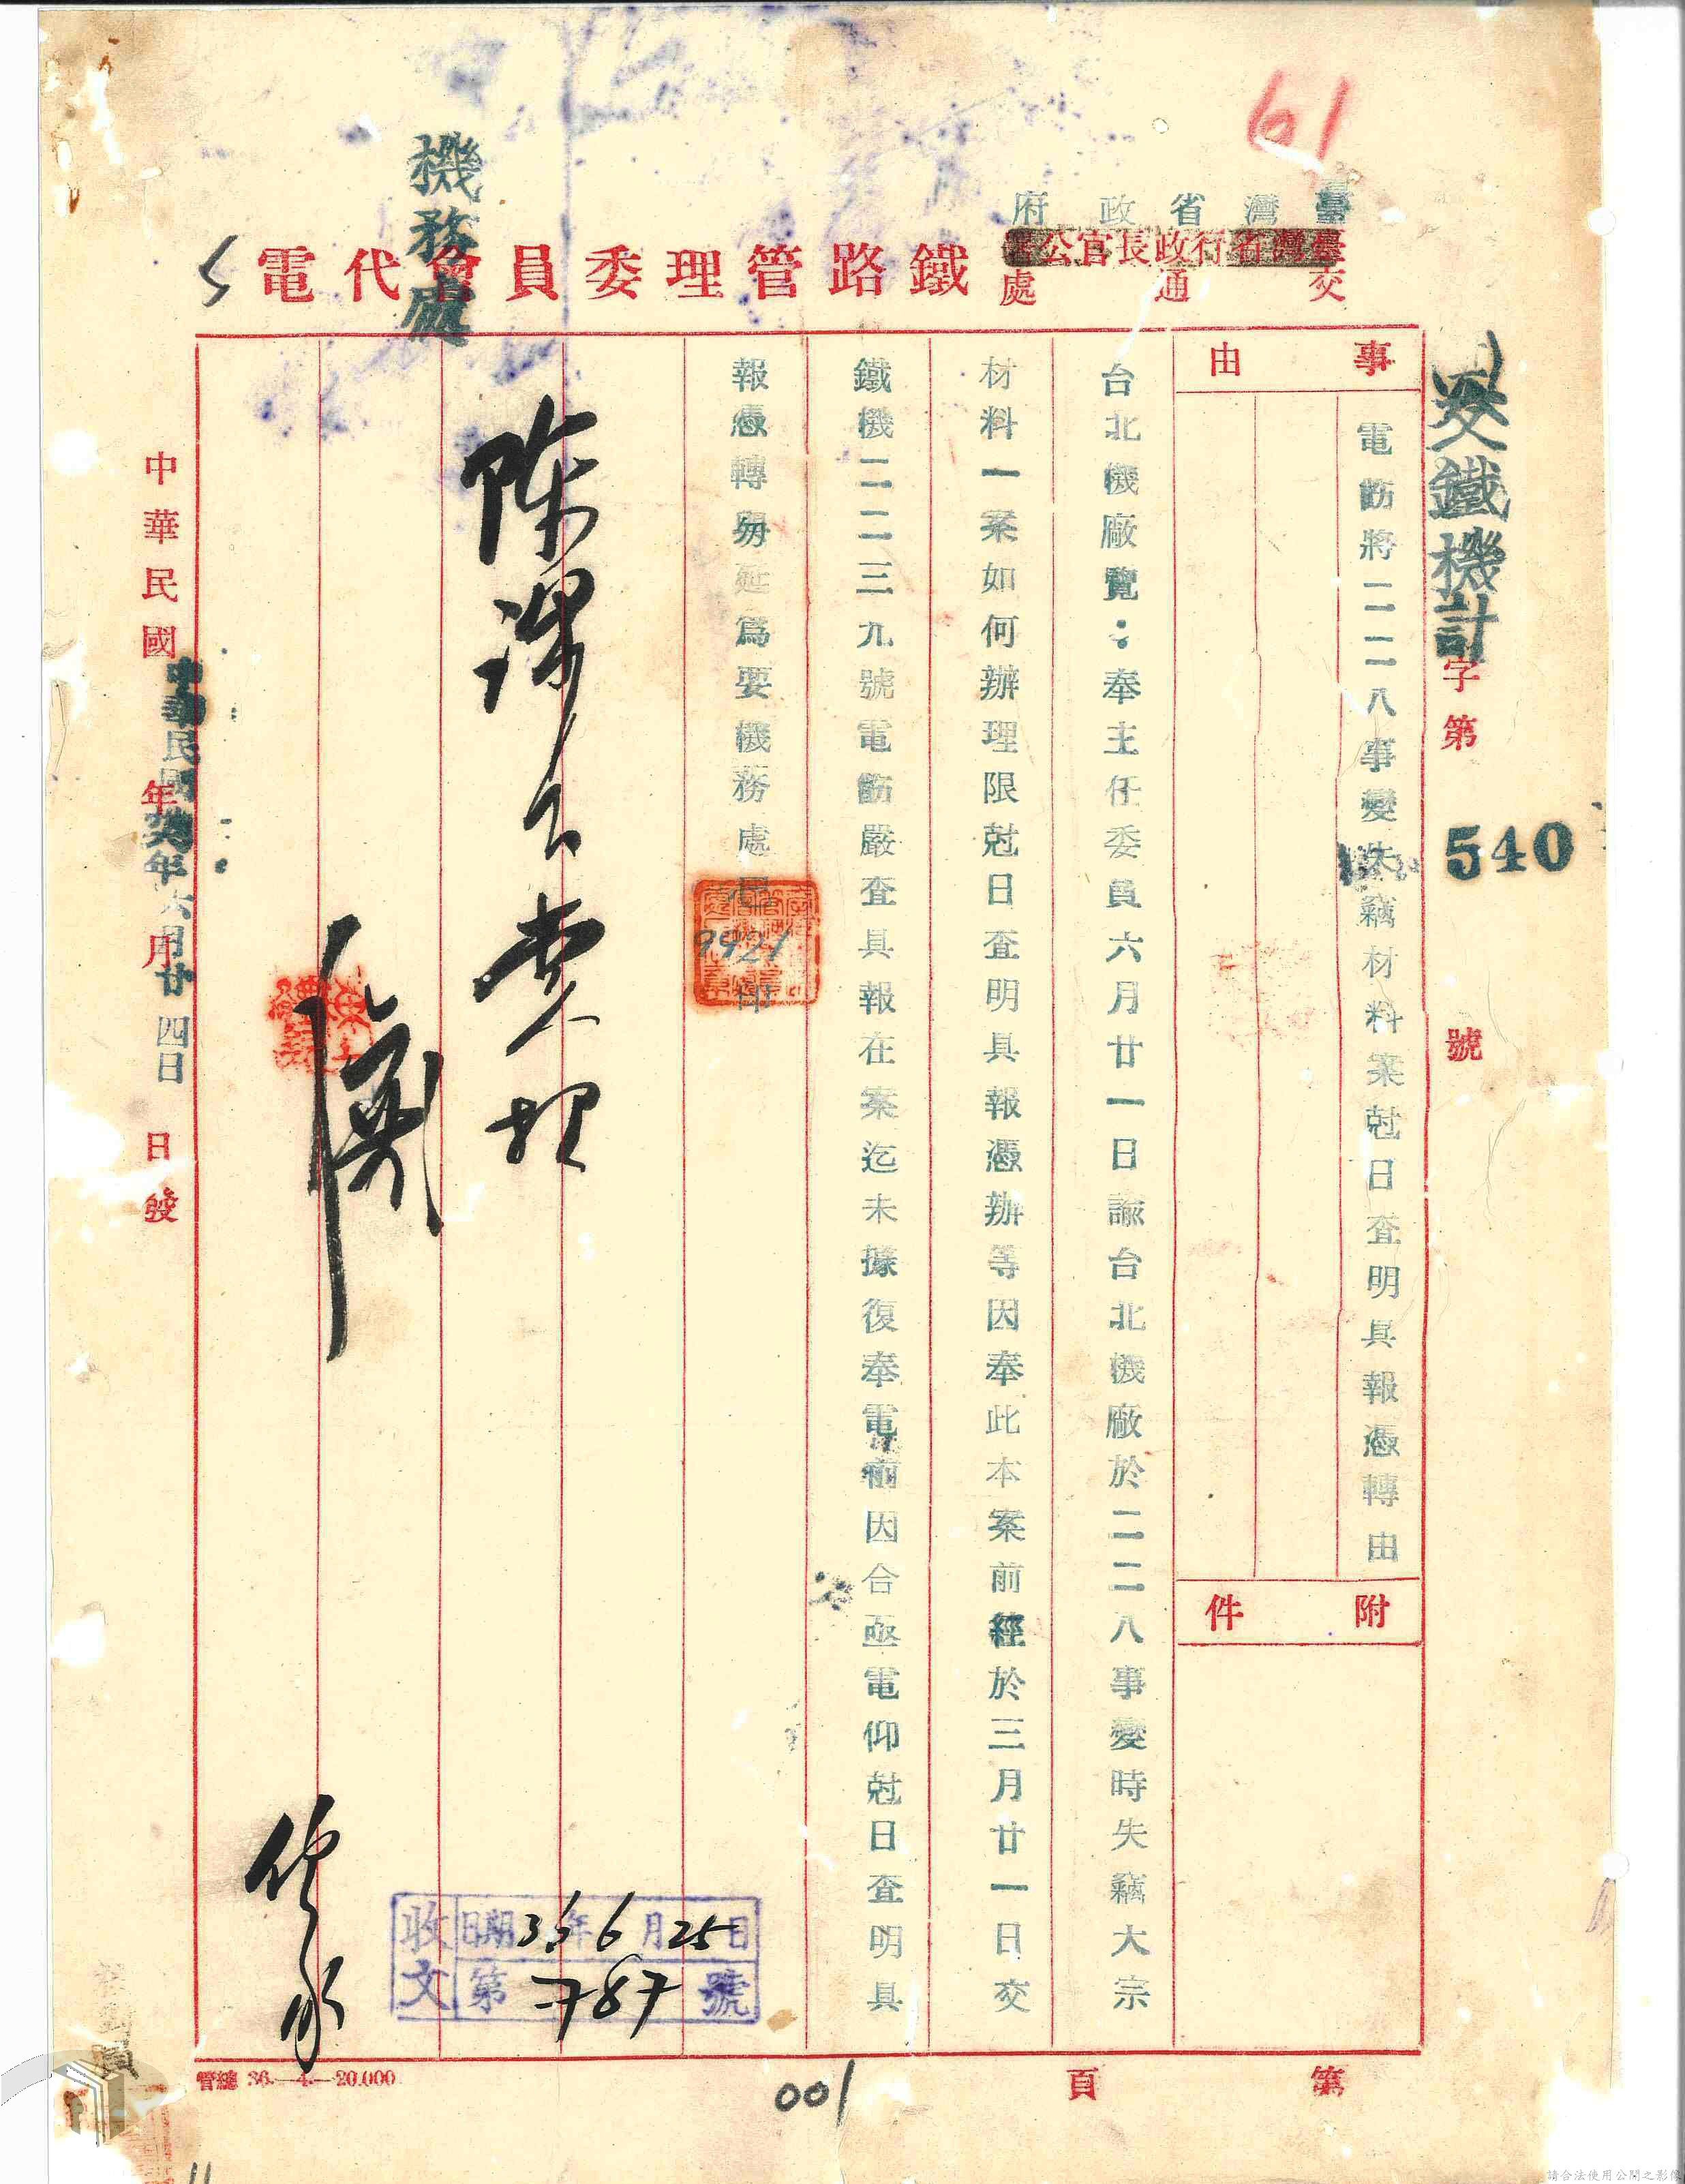 61
臺灣省政府
臺灣省行政長官公署
交通處
鐵路管理委員會代電
機務處
交鐵機計字第540號
事由
電飭將二二八事變失竊材料案尅日查明具報憑轉由
附件
台北機廠覽：奉主任委員六月廿一日諭台北機廠於二二八事變時失竊大宗
材料一案如何辦理限尅日查明具報憑辦等因奉此本案前經於三月廿一日交
鐵機二二三九號電飭嚴查具報在案迄未據復奉電前因合亟電仰尅日查明具
報憑轉毋延為要機務處
9421
印
中華民國 年 月 日發
中華民國卅六年六月廿四日
收文
日期36年6月25日
第787號
管總 36.—4.—20.000
001
第頁
請合法使用公開之影像